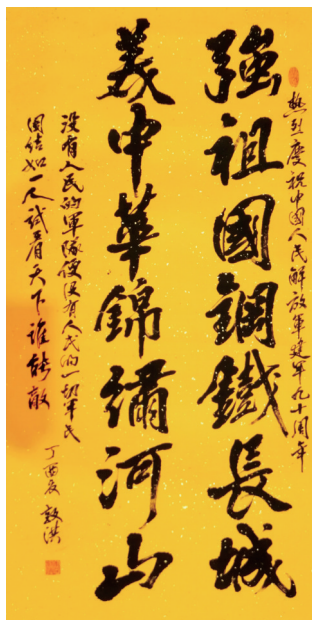 熱烈慶祝中國人民解放軍建軍九十周年
強祖國鋼鐵長城
美中華錦繡河山
没有人民的軍隊便没有人民的一切軍民
團結如一人試看天下誰能敵
丁酉夏 敦洪